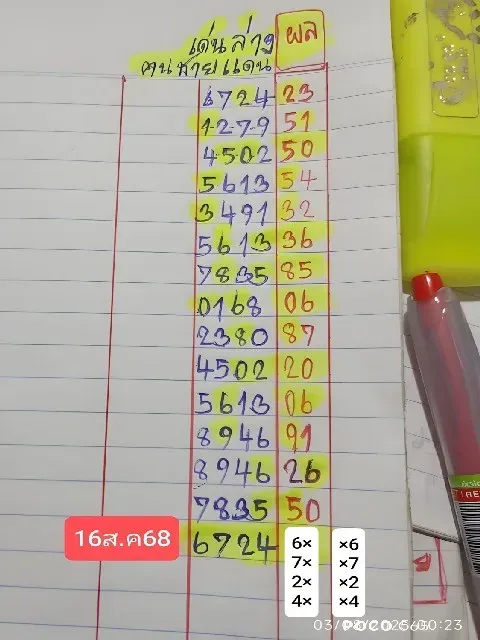 เด่นล่าง ผล
คนชายแดน
6724 23
1-2-7-9 51
4502 50
5613 54
3491 32
5613 36
7835 85
0168 06
2380 87
4502 20
5613 06
8946 91
8946 26
7835 50
16ส.ค68 6724
6× ×6
7× ×7
2× ×2
4× ×4